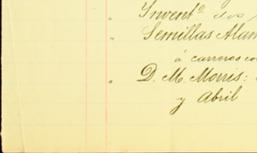 Invent.º
" Semillas Alam
á carreros co
" D. M. Morris:
y Abril